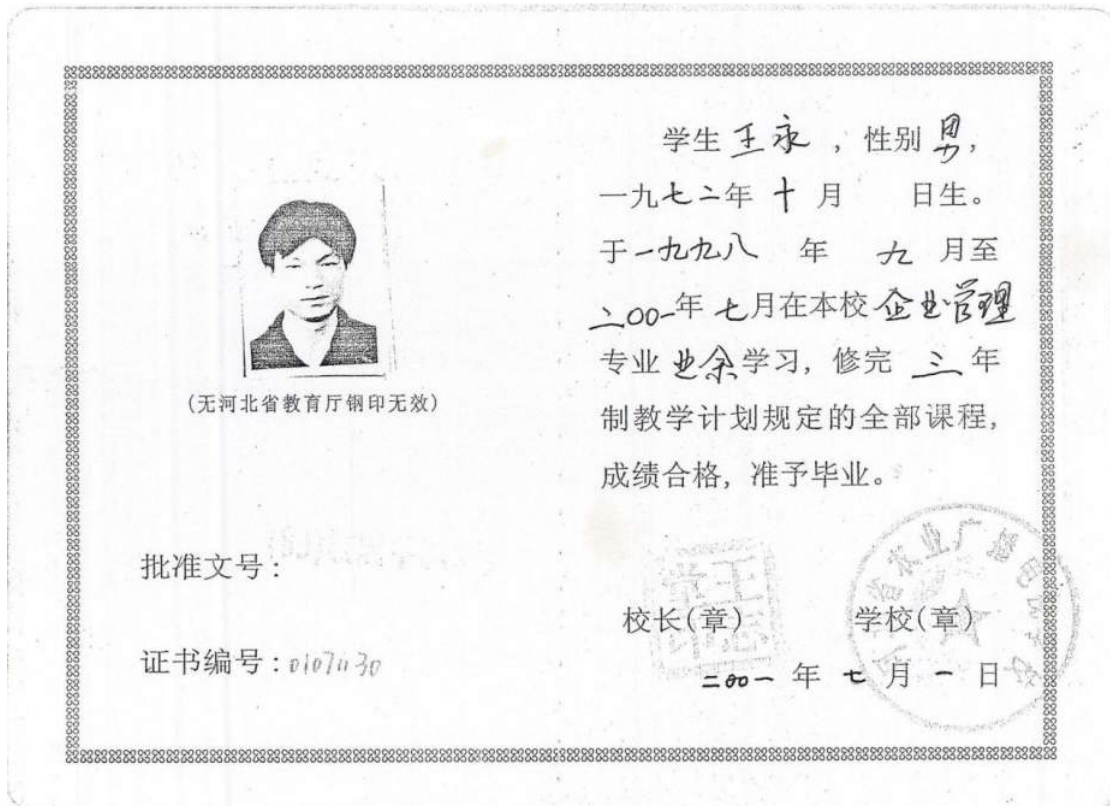 (无河北省教育厅钢印无效)
批准文号:
证书编号:01071130
学生 王永 ,性别 男,
一九七二年 十 月 日生。
于一九九八 年 九 月至
二00一年 七月在本校 企业管理
专业 业余学习, 修完 三 年
制教学计划规定的全部课程,
成绩合格, 准予毕业。
校长(章) 学校(章)
二00一 年 七 月 一 日